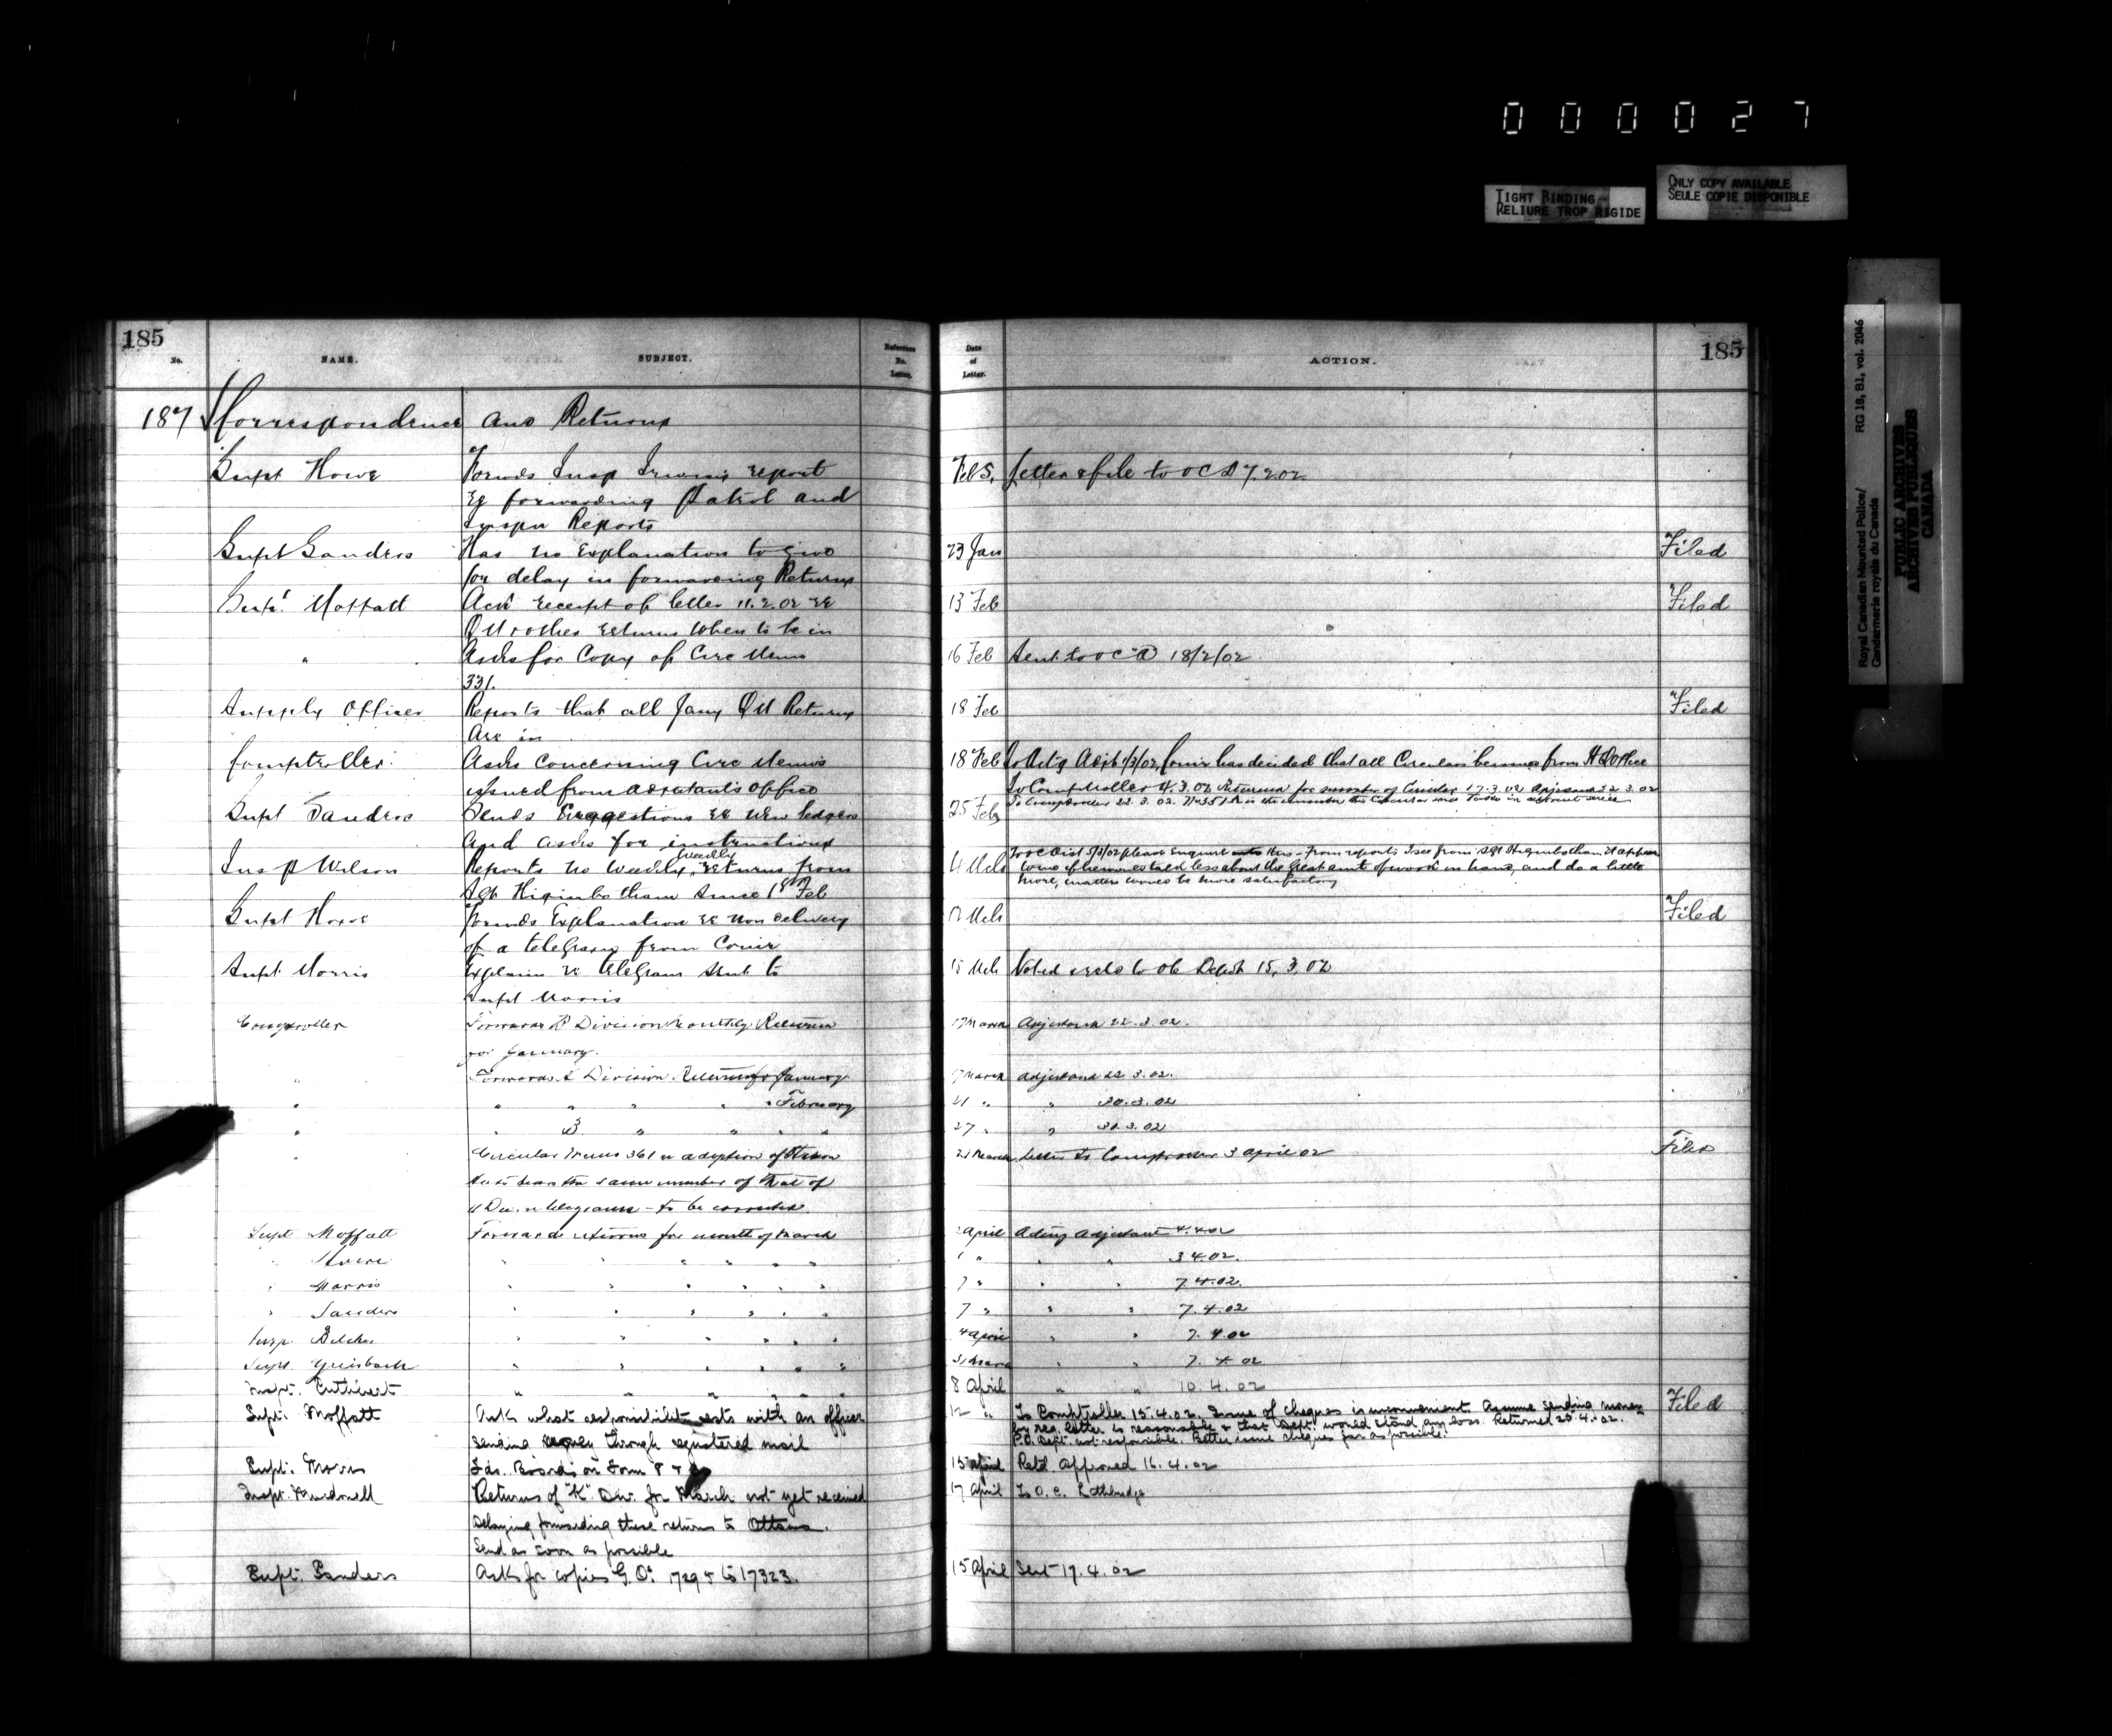 0 0 0 0 2 7
TIGHT BINDING
RELIURE TROP RIGIDE
ONLY COPY AVAILABLE
SEULE COPIE DISPONIBLE
Royal Canadian Mounted Police/ RG 18, B1, vol. 2046
Gendarmerie royale du Canada
PUBLIC ARCHIVES
ARCHIVES PUBLIQUES
CANADA
185
No. NAME. SUBJECT. Reference No. Letter. Date of Letter. ACTION.
185
187 Correspondence and Returns
Supt Howe Forwds Insp Irwins report Feb 5. Letter & file to OC D 7.2.02
re forwarding Patrol and
Reports
Supt Sanders Has no Explanation to give 23 Jan Filed
for delay in forwarding Returns
Supt. Moffatt Ack receipt of letter 11.2.02 re 13 Feb Filed
QM & other returns when to be in
" Asks for Copy of Circ Memo 16 Feb Sent to OC D 18/2/02
331.
Supply Officer Reports that all Jany QM Returns 18 Feb Filed
Are in
Comptroller Asks Concerning Circ Memos 18 Feb To Actg Adjt 1/3/02, Comr has decided that all Circulars be from HQ Office
issued from adjutants office To Comptroller 4.3.02 Returned for number of Circular 17.3.02 Adjutant 22.3.02
Supt Sanders Sends Suggestions re New ledgers 25 Feb To Comptroller 22.3.02.
and asks for instructions
Insp Wilson Reports no Weekly returns from 4 Mch From reports I see from Sgt Higinbotham it appears
Sgt Higinbotham Since 1st Feb talked less about the great amt of work in hand, and do a little
more, matters would be more satisfactory
Supt Howe Forwds Explanation re Non delivery Mch Filed
of a telegram from Comr
Supt Morris Explains re telegram sent to 15 Mch Noted 15.3.02
Supt Morris
Comptroller Forwards Division Monthly Return 17 March Adjutant 22.3.02.
for January.
" Forwards Division Return for January March adjutant 22.3.02.
" " " " " " February 21 " " 30.3.02
" " " " " " 27 " " 30.3.02
" Circular Memo 361 adoption of March Letter to Comptroller 3 April 02 Filed
the same number of that of
telegrams - to be corrected.
Supt Moffatt Forwards returns for month of March April Acting Adjutant 4.4.02
" Howe " " " " " " " " " 3.4.02.
" Morris " " " " " " 7 " " " 7.4.02.
" Sanders " " " " " " 7 " " " 7.4.02
Insp. Belcher " " " " " " 4 April " " 7.4.02
Supt. Griesbach " " " " " " 31 March " " 7.4.02
Inspt. Cuthbert " " " " " " 8 April " " 10.4.02
Supt. Moffatt Ask what responsibility rests with an officer 12 " To Comptroller 15.4.02. Issue of cheques is inconvenient. Assume sending money Filed
sending money through registered mail by reg. letter is reasonable & that Dept. would stand any loss. Returned 25.4.02.
P.O. Dept. not responsible. Better issue cheques far as possible.
Supt. Morris Fds. Boards on Form 15 April Retd. Approved 16.4.02
Inspt. Macdonell Returns of "K" Div. for March not yet received 17 April To O.C. Lethbridge
Delaying forwarding these returns to Ottawa.
Send as soon as possible
Supt. Sanders Asks for copies G.O. 17295 to 17323. 15 April Sent 17.4.02